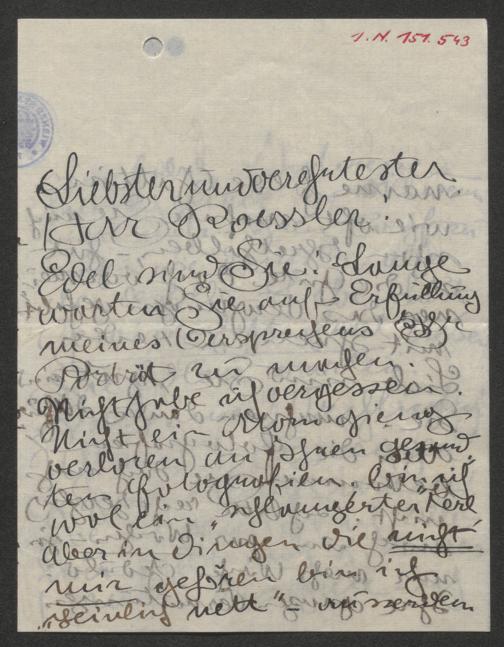 I.N. 151.543
Liebster und verehrtester
Herr Roessler!
Edel sind Sie! Lange
warten Sie auf Erfüllung
meines Versprechens Ihr
Porträt zu machen.
Nicht habe ich vergessen.
Nicht ein ging
verloren an Ihnen
ten Fotografien. bin ich
wol ein „schlamperter" Kerl
aber in Dingen die nicht
mir gehören bin ich
„peinlich nett" – ausserdem